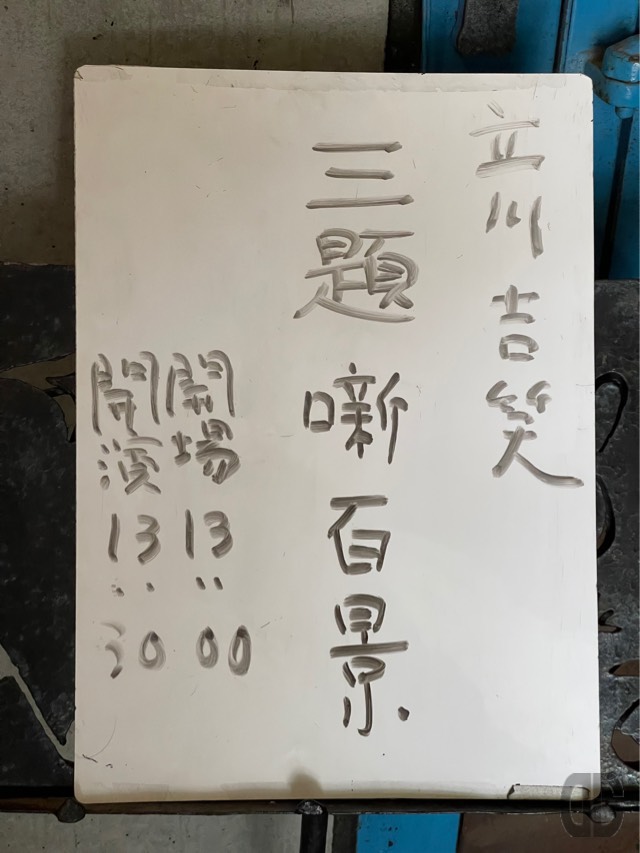 立川吉笑
三題噺百景
開場 13:00
開演 13:30